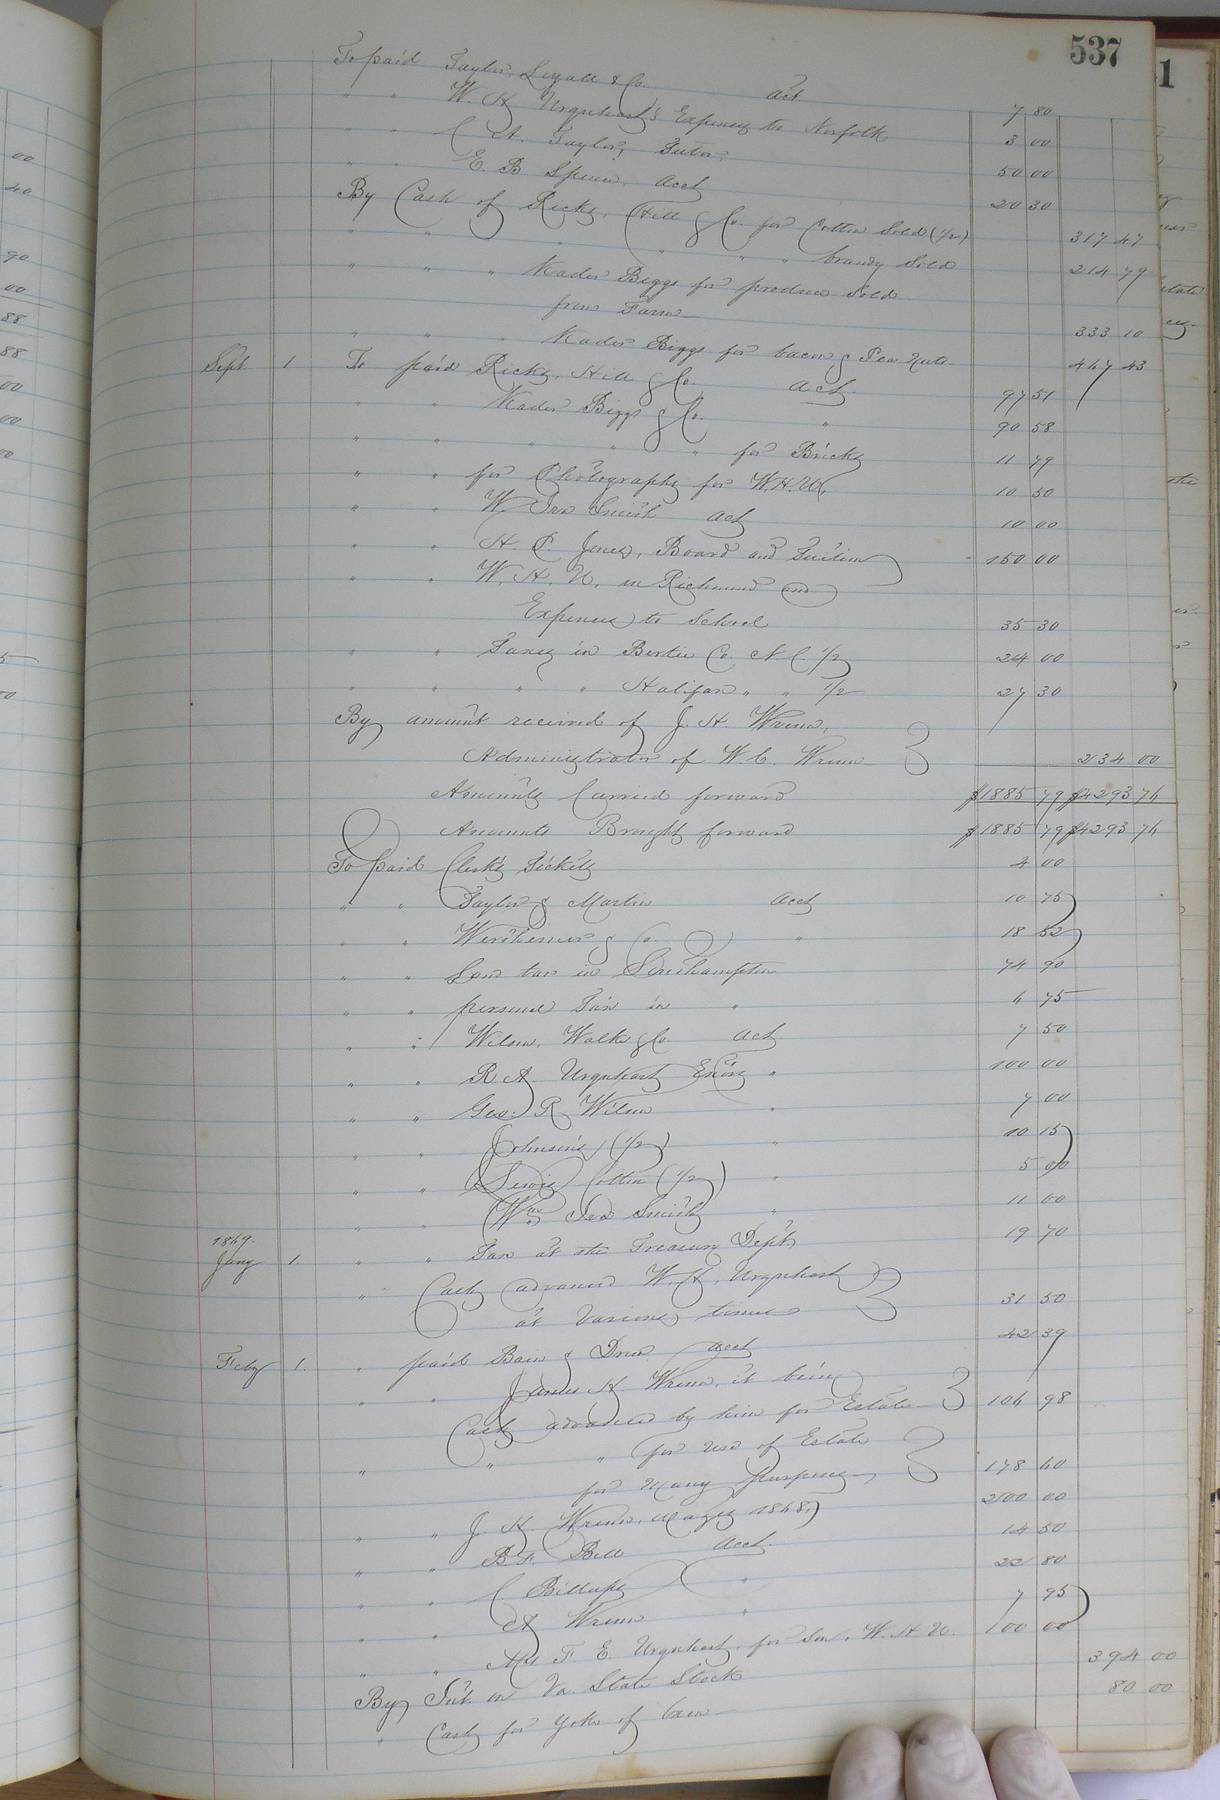 537
To paid Taylor, & Co. act. 7 80
" " W. H. Urquhart's Expenses to Norfolk 3 00
" " C. A. Taylor, Tutor, 50 00
" " E. B. Spence, acct 20 30
By Cash of Ricks, Hill & Co. for Cotton Sold (1/2) 317 47
" " " " " " brandy Sold 214 79
" " " Kader Biggs for produce Sold
from Farm 333 10
" " " Kader Biggs for bacon & Pea Nuts 417 43
Sept 1 To paid Ricks, Hill & Co. act. 97 51
" " Kader Biggs & Co. " 90 58
" " " " for Bricks 11 79
" " for Photographs for W.H.U. 10 50
" " W. Ira Smith act 10 00
" " H. P. Jones, Board and Tuition 150 00
" " W. H. U. in Richmond and
Expenses to School 35 30
" " Taxes in Bertie Co. N C. 1/2 24 00
" " " " Halifax " " 1/2 27 30
By amount received of J. H. Wrenn,
Administrator of W. C. Wrenn 234 00
Amounts Carried forward $1885 79 $4293 74
Amounts Brought forward $1885 79 $4293 74
To paid Clerk's Tickets 4 00
" " Taylor & Martin acct 10 75
" " Wertheimer & Co " 18 52
" " Land tax in Southampton 74 90
" " personal Tax in " 6 75
" " Wilson, Walke & Co. act 7 50
" " R. A. Urquhart " 100 00
" " Geo. R. Wilson " 7 00
" " Johnson's (1/2) " 10 15
" " Cotton (1/2) " 5 00
" " Wm Ira Smith " 11 00
1869.
Jany 1. " " Tax at the Treasury Dept, 19 70
" Cash advanced W. H. Urquhart
at Various times 31 50
Feby 1. " paid Bain & acct 42 39
" James H. Wrenn, it being
Cash advanced by him for Estate 104 98
" " " for use of Estate
for Many purposes 178 60
" " J. H. Wrenn, wages 1868, 200 00
" " B. F. Bell acct. 14 50
" " C Billups " 22 80
" " A Wrenn " 7 95
" " Mrs F. E. Urquhart, for Son, W. H. U. 100 00
By Int. on Va. State Stock 394 00
" Cash for yoke of Oxen 80 00